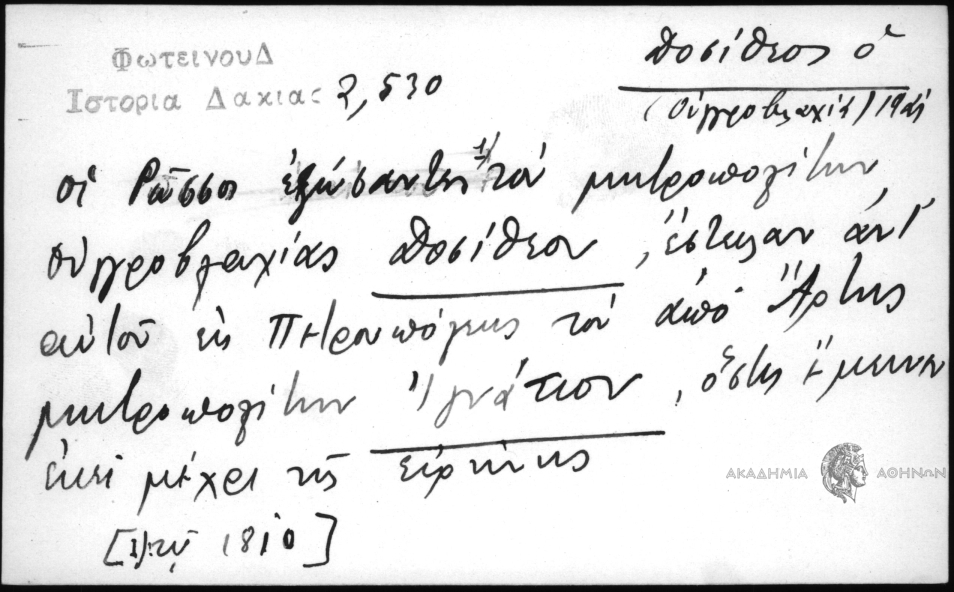 ΦωτεινουΔ
Ιστορια Δακιας 2, 530
Δοσίθεος ὁ
(Οὐγγροβλαχίας) 19ος
οἱ Ρῶσσοι ἐξώσαντες τὸν μητροπολίτην
Οὐγγροβλαχίας Δοσίθεον, ἔστειλαν ἀντ'
αὐτοῦ ἐκ Πετρουπόλεως τὸν ἀπὸ Ἄρτης
μητροπολίτην Ἰγνάτιον, ὅστις ἔμεινεν
ἐκεῖ μέχρι τῆς εἰρήνης
1810]
ΑΚΑΔΗΜΙΑ ΑΘΗΝΩΝ